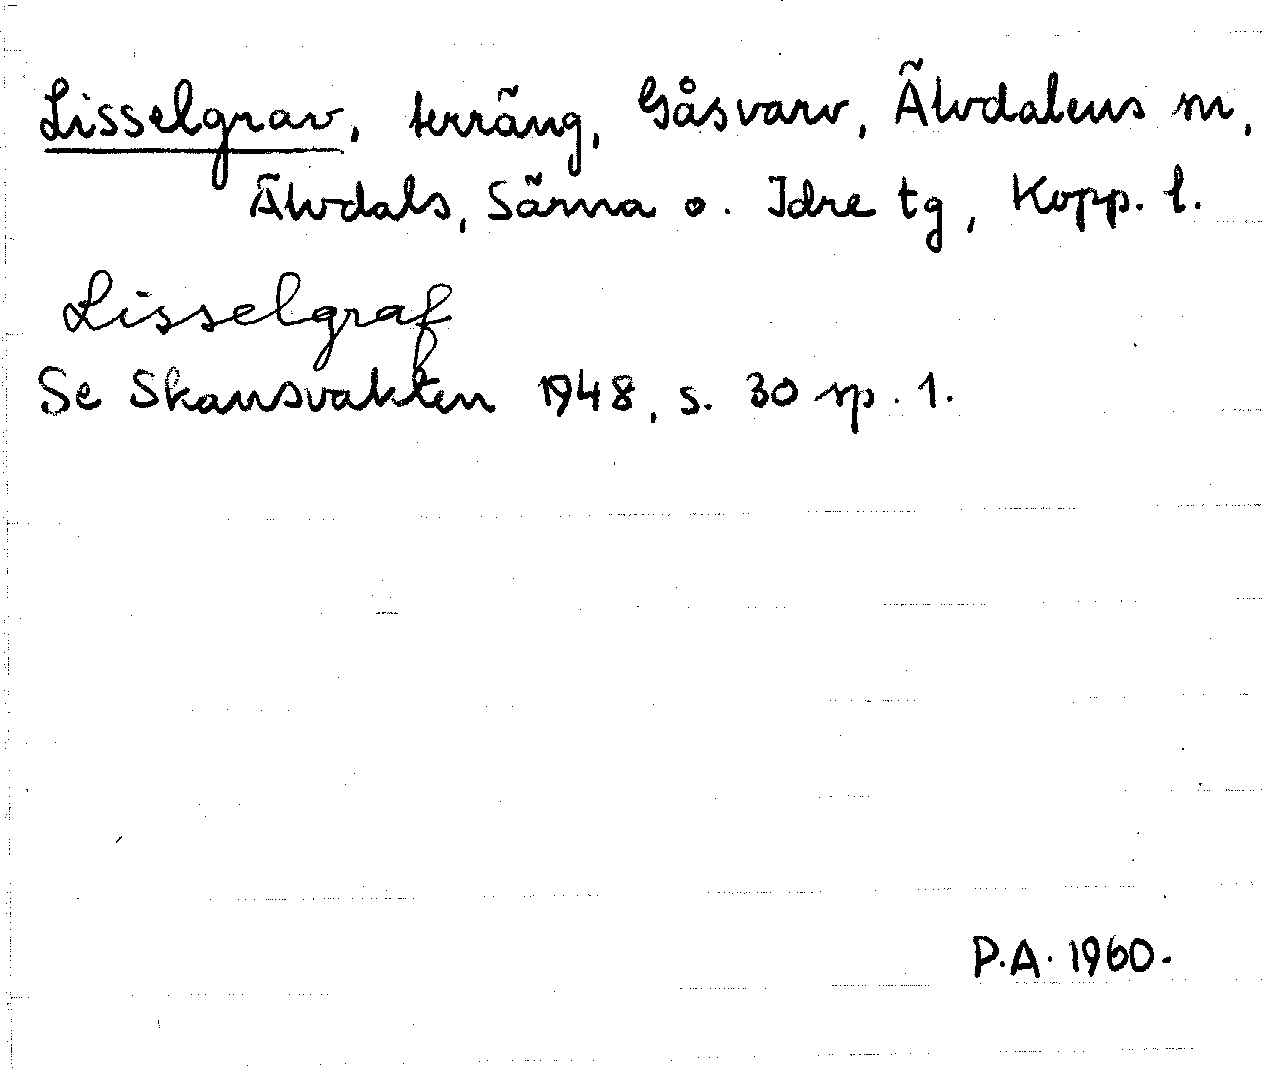 Lisselgrav, terräng, Gåsvarv, Älvdalens sn,
Älvdals, Särna o. Idre tg, Kopp. l.
Lisselgraf
Se Skansvakten 1948, s. 30 sp. 1.
P.A. 1960.